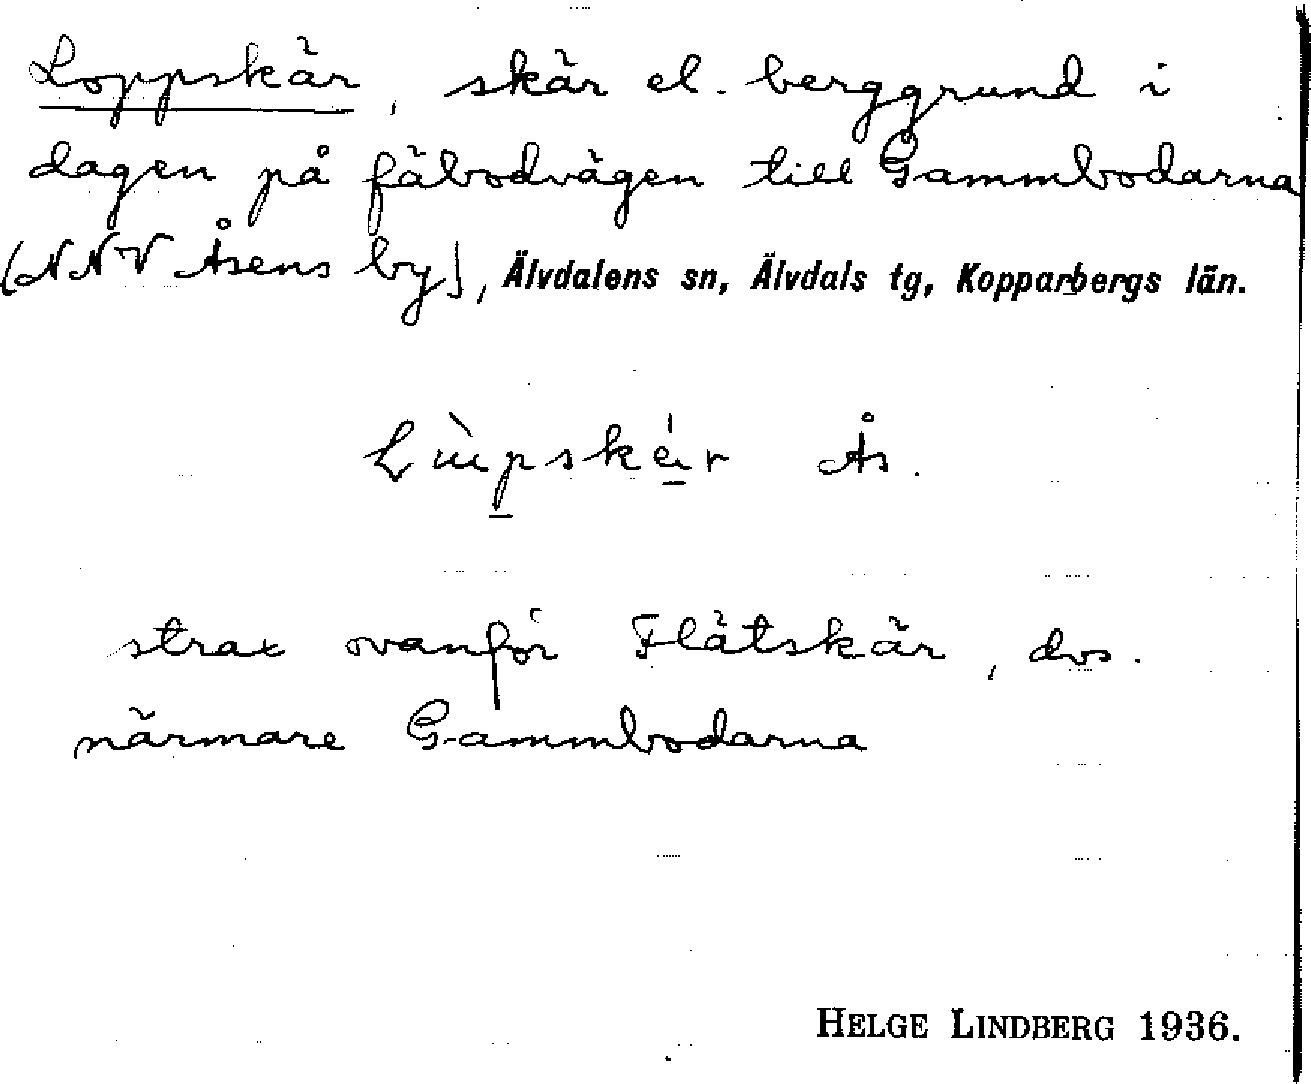 Loppskär, skär el. berggrund i
dagen på fäbodvägen till Gammbodarna
(NNV Åsens by), Älvdalens sn, Älvdals tg, Kopparbergs län.
Lùpskér Ås.
strax ovanför Flätskär, dvs.
närmare Gammbodarna
HELGE LINDBERG 1936.